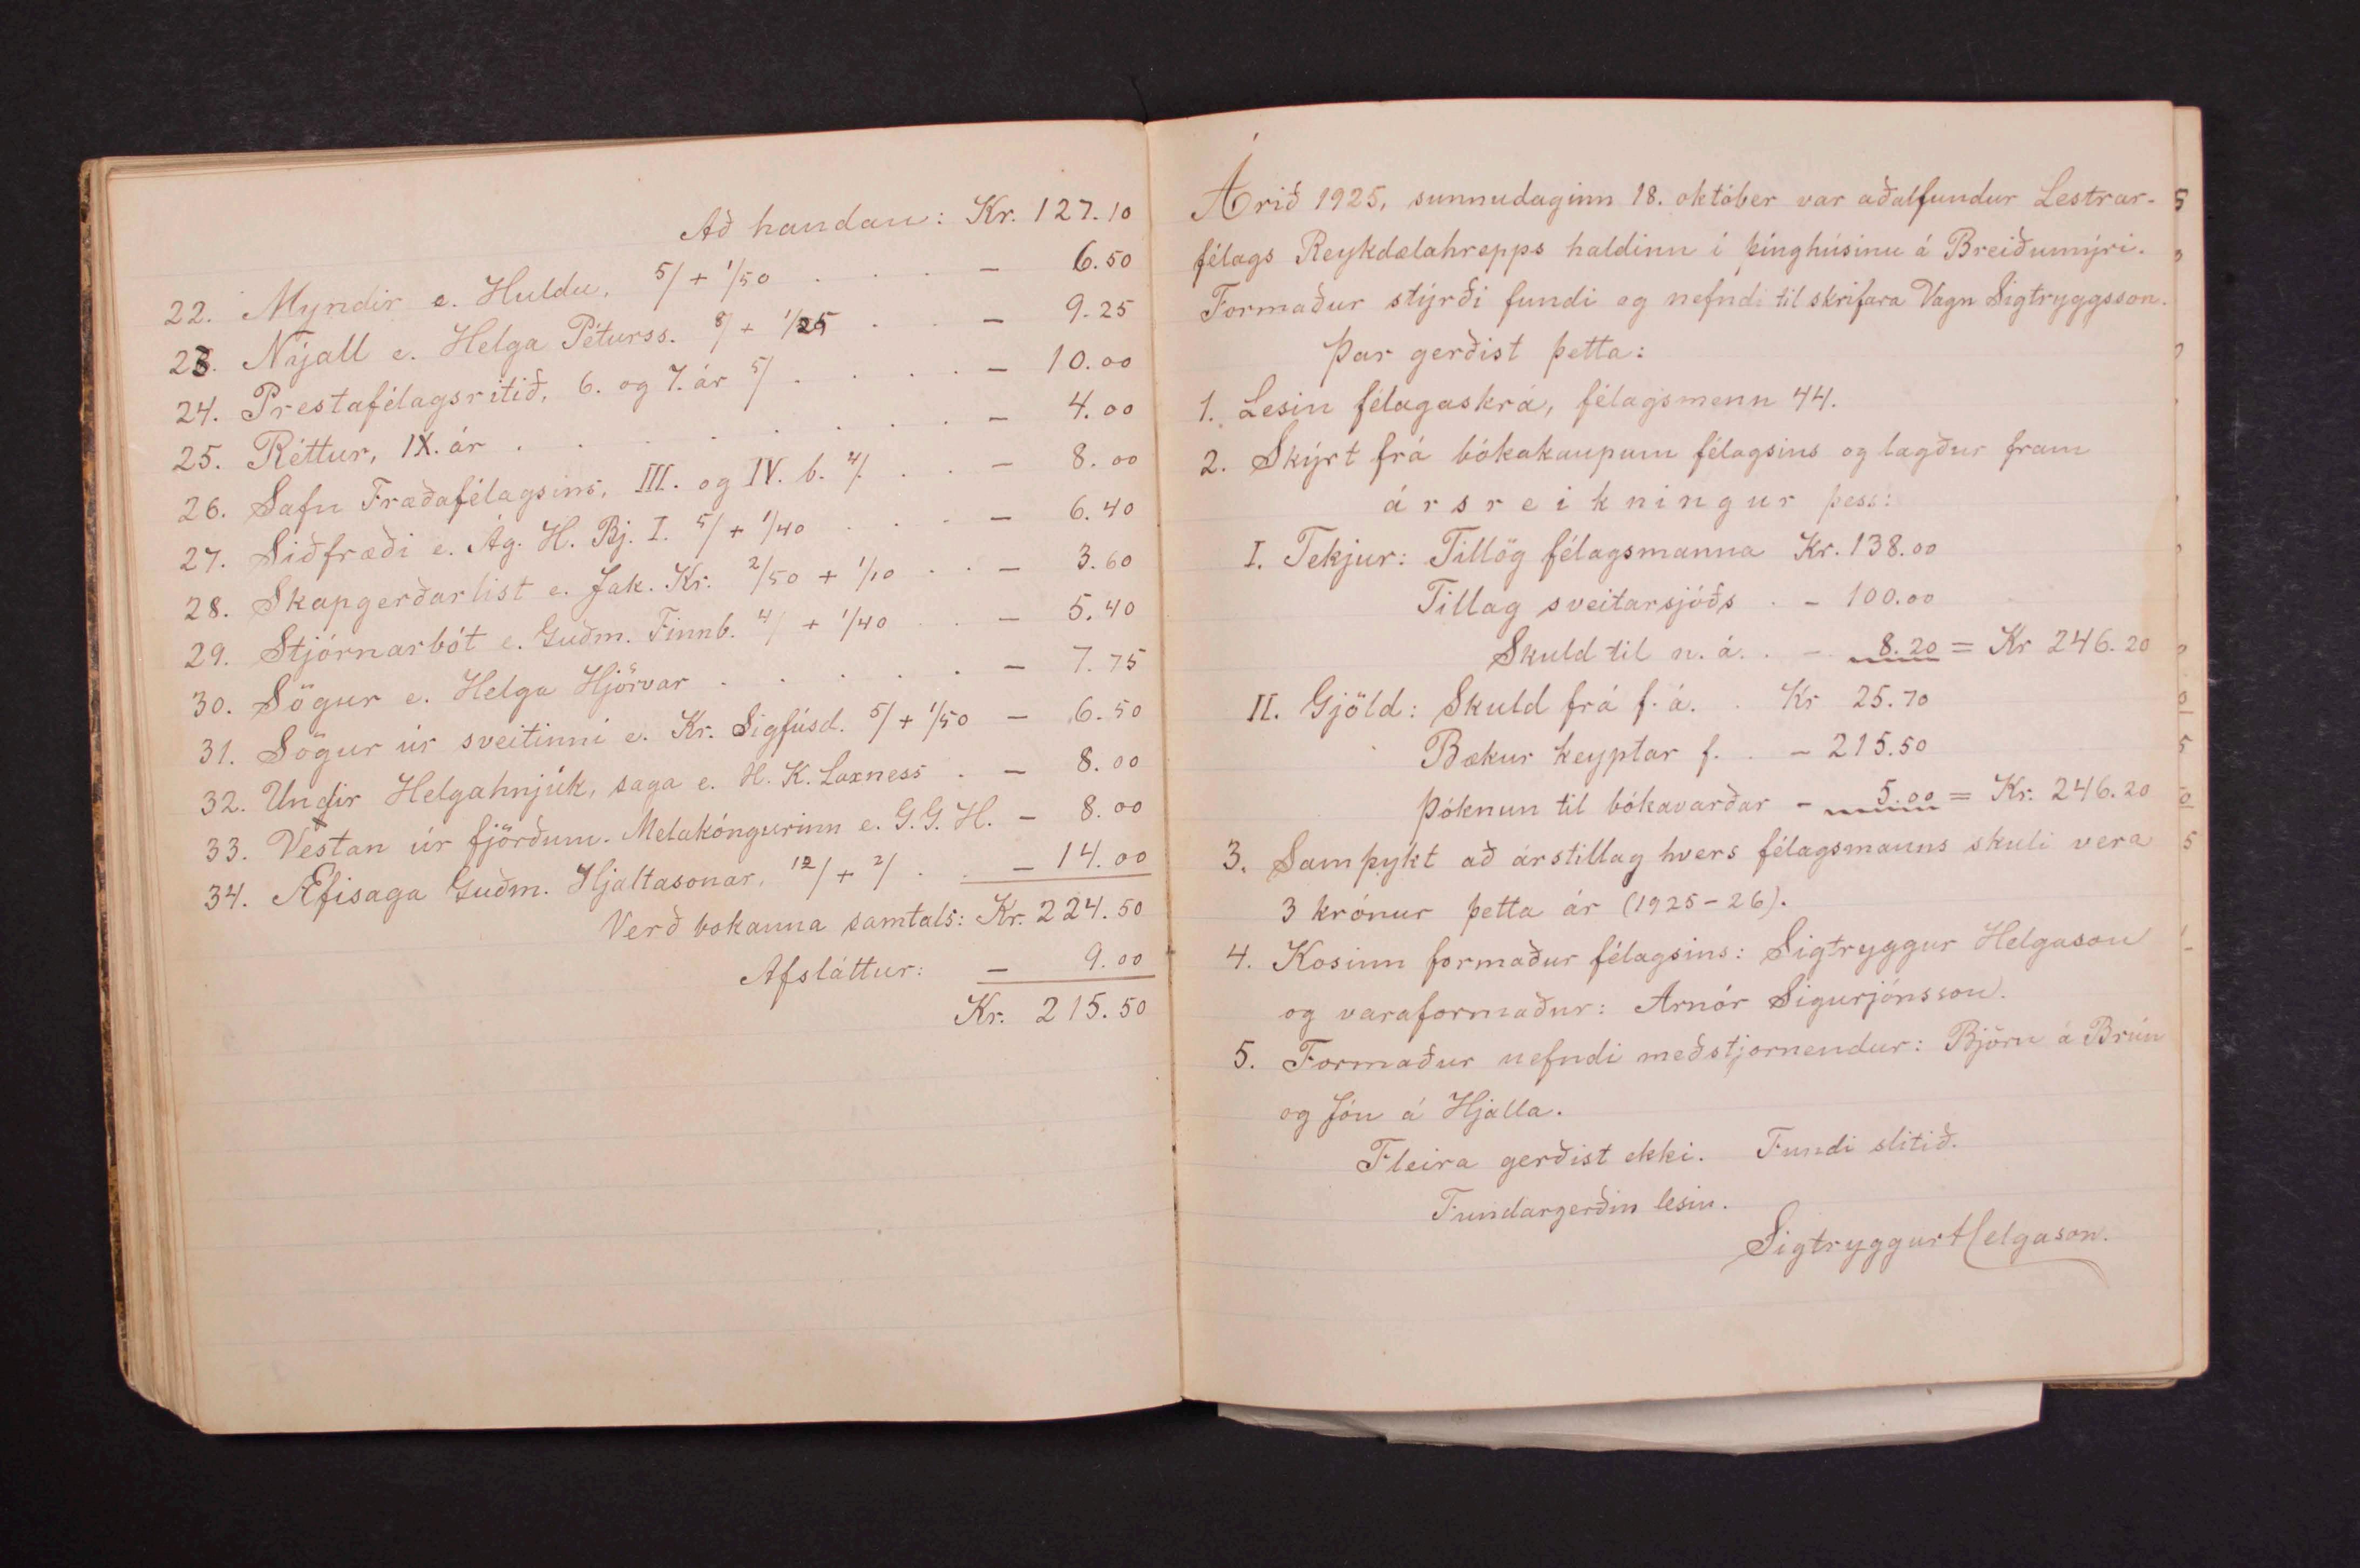 Að handan: Kr. 127.10
22. Myndir e. Huldu, 5/ + 1/50 . . . — 6.50
23. Nýall e. Helga Péturss. 8/ + 1/25 . . — 9.25
24. Prestafélagsritið, 6. og 7. ár 5/ . . . . — 10.00
25. Réttur, IX. ár . . . . . . . . — 4.00
26. Safn Fræðafélagsins, III. og IV. b. 4/. . . — 8.00
27. Siðfræði e. Ág. H. Bj. I. 5/ + 1/40 . . . — 6.40
28. Skapgerðarlist e. Jak. Kr. 2/50 + 1/10 . . — 3.60
29. Stjórnarbót e. Guðm. Finnb. 4/ + 1/40 . . — 5.40
30. Sögur e. Helga Hjörvar . . . . . — 7.75
31. Sögur úr sveitinni e. Kr. Sigfúsd. 5/ + 1/50 — 6.50
32. Undir Helgahnjúk, saga e. H. K. Laxness . — 8.00
33. Vestan úr fjörðum. Melakóngurinn e. G. G. H. — 8.00
34. Æfisaga Guðm. Hjaltasonar, 12/ + 2/ . . — 14.00
Verð bokanna samtals: Kr. 224.50
Afsláttur: — 9.00
Kr. 215.50
Árið 1925, sunnudaginn 18. október var aðalfundur Lestrar-
félags Reykdælahrepps haldinn í þinghúsinu á Breiðumýri.
Formaður stýrði fundi og nefndi til skrifara Vagn Sigtryggsson.
Þar gerðist þetta:
1. Lesin félagaskrá, félagsmenn 44.
2. Skýrt frá bókakaupum félagsins og lagður fram
ársreikningur þess:
I. Tekjur: Tillög félagsmanna Kr. 138.00
Tillag sveitarsjóðs . — 100.00
Skuld til n. á. . — 8.20 = Kr 246.20
II. Gjöld: Skuld frá f. á. . Kr 25.70
Bækur keyptar f. . — 215.50
Þóknun til bókavarðar — 5.00 = Kr. 246.20
3. Samþykt að árstillag hvers félagsmanns skuli vera
3 krónur þetta ár (1925-26).
4. Kosinn formaður félagsins: Sigtryggur Helgason
og varaformaður: Arnór Sigurjónsson.
5. Formaður nefndi meðstjornendur: Björn á Brún
og Jón á Hjalla.
Fleira gerðist ekki. Fundi slitið.
Fundargerðin lesin.
Sigtryggur Helgason.